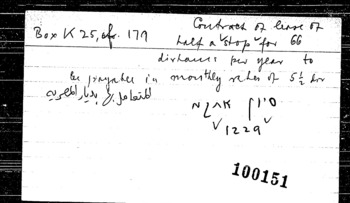 Box K 25, fr. 179
Contract of lease of
half a shop for 66
dirhams per year to
be payable in monthly rates of 5½ dir
المتعامل بها بديار المصرية
סיון
1229
100151